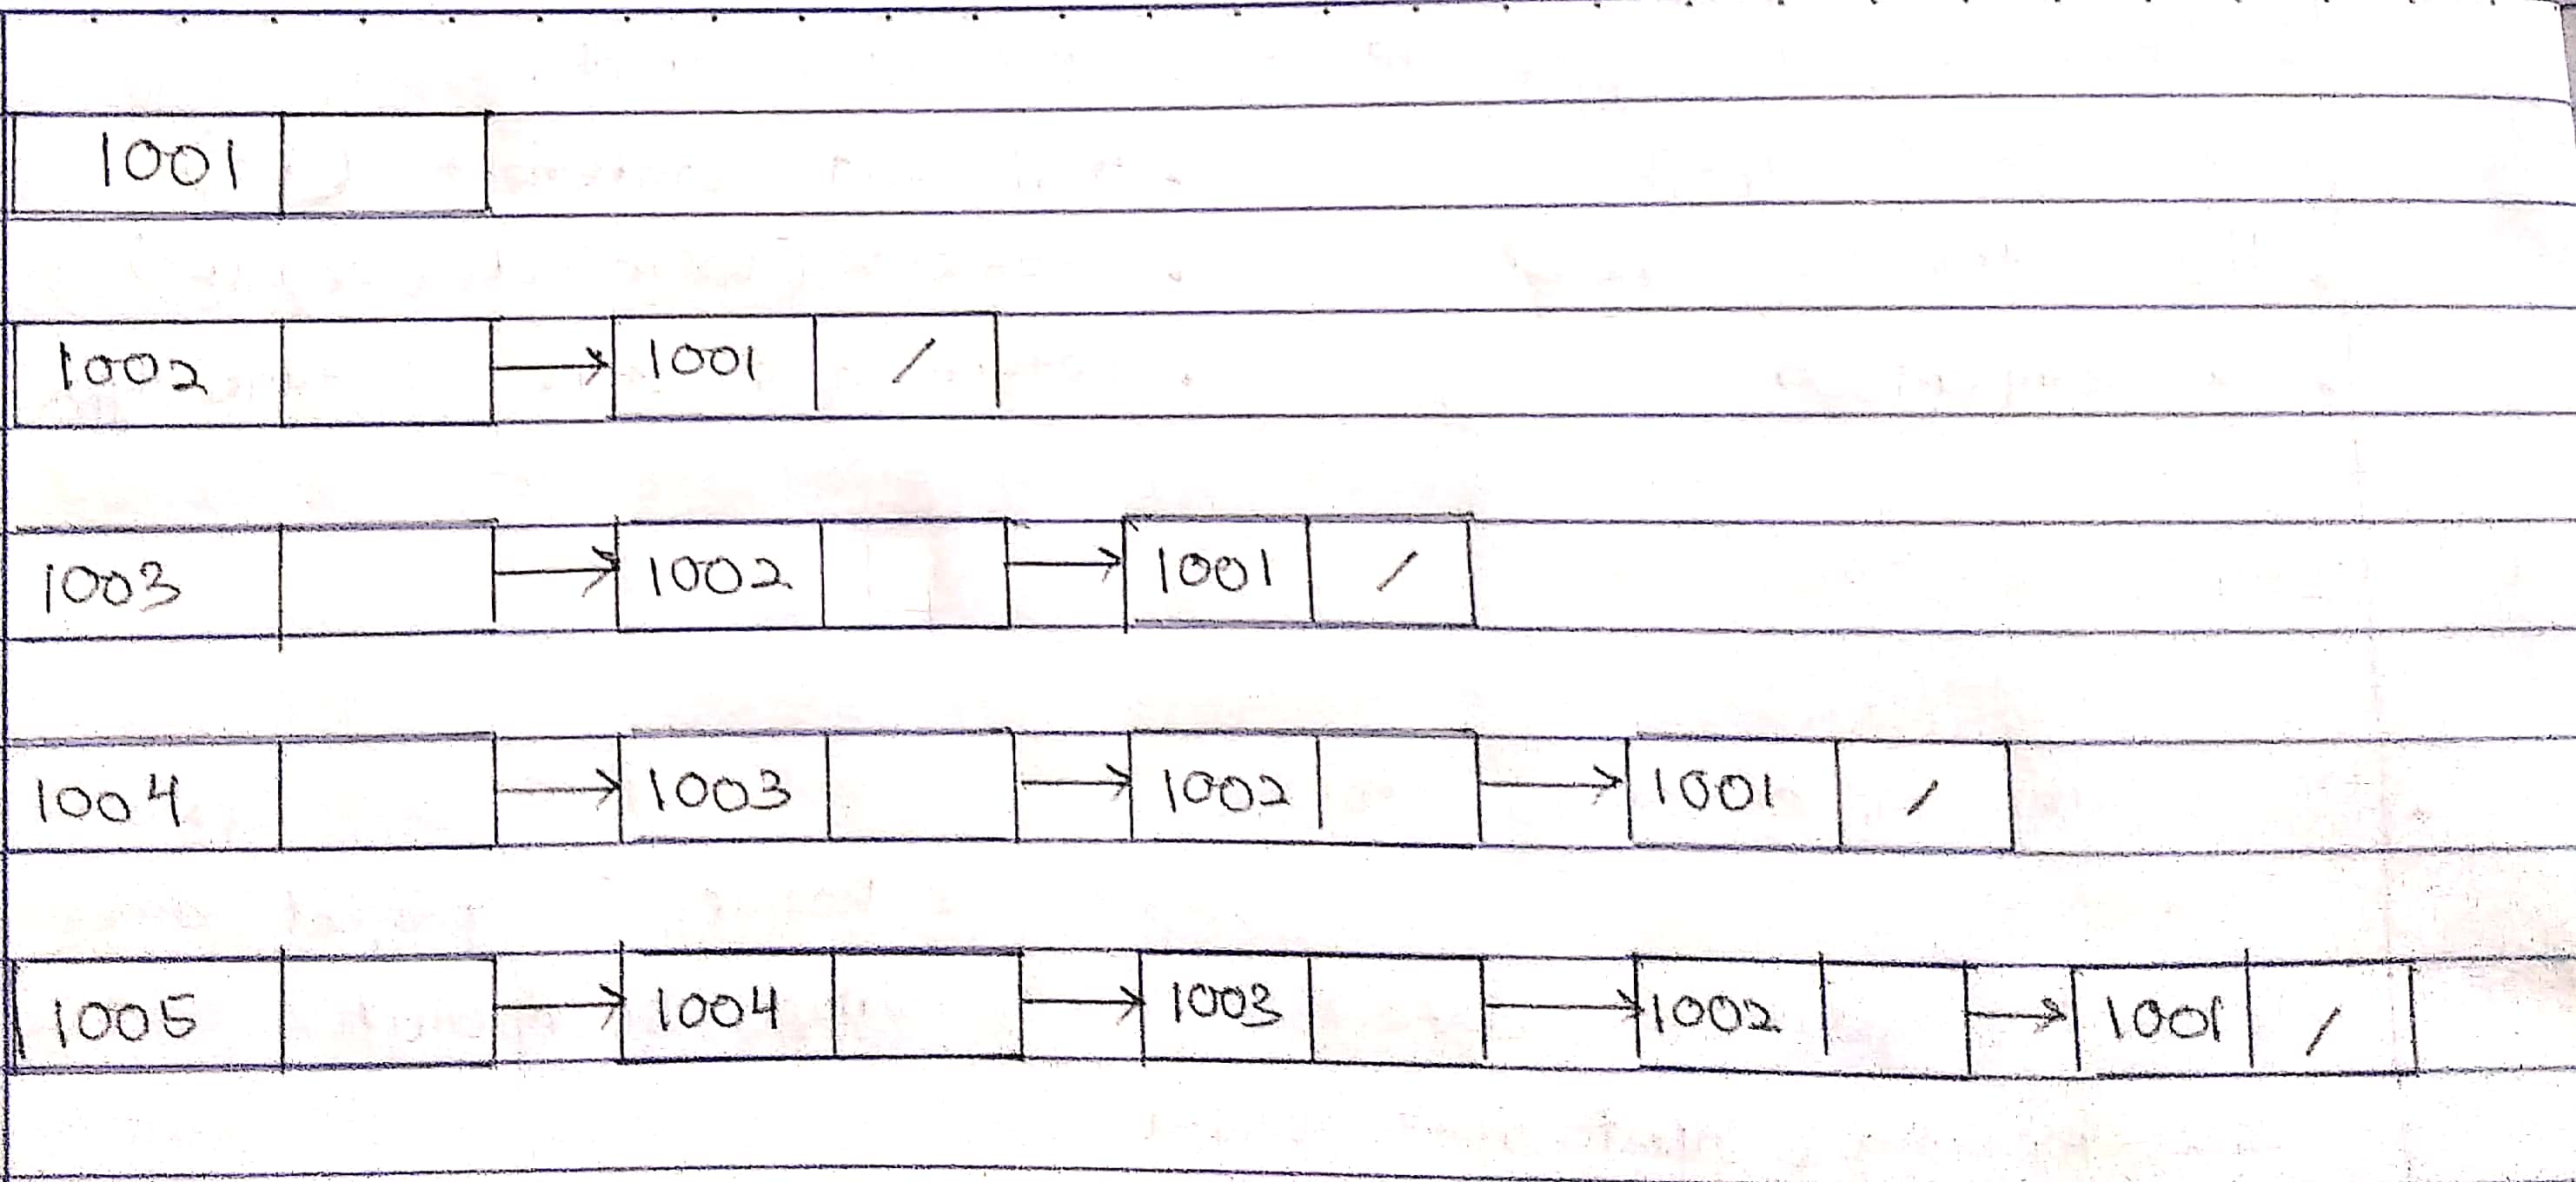 1001
1002 → 1001 /
1003 → 1002 → 1001 /
1004 → 1003 → 1002 → 1001 /
1005 → 1004 → 1003 → 1002 → 1001 /